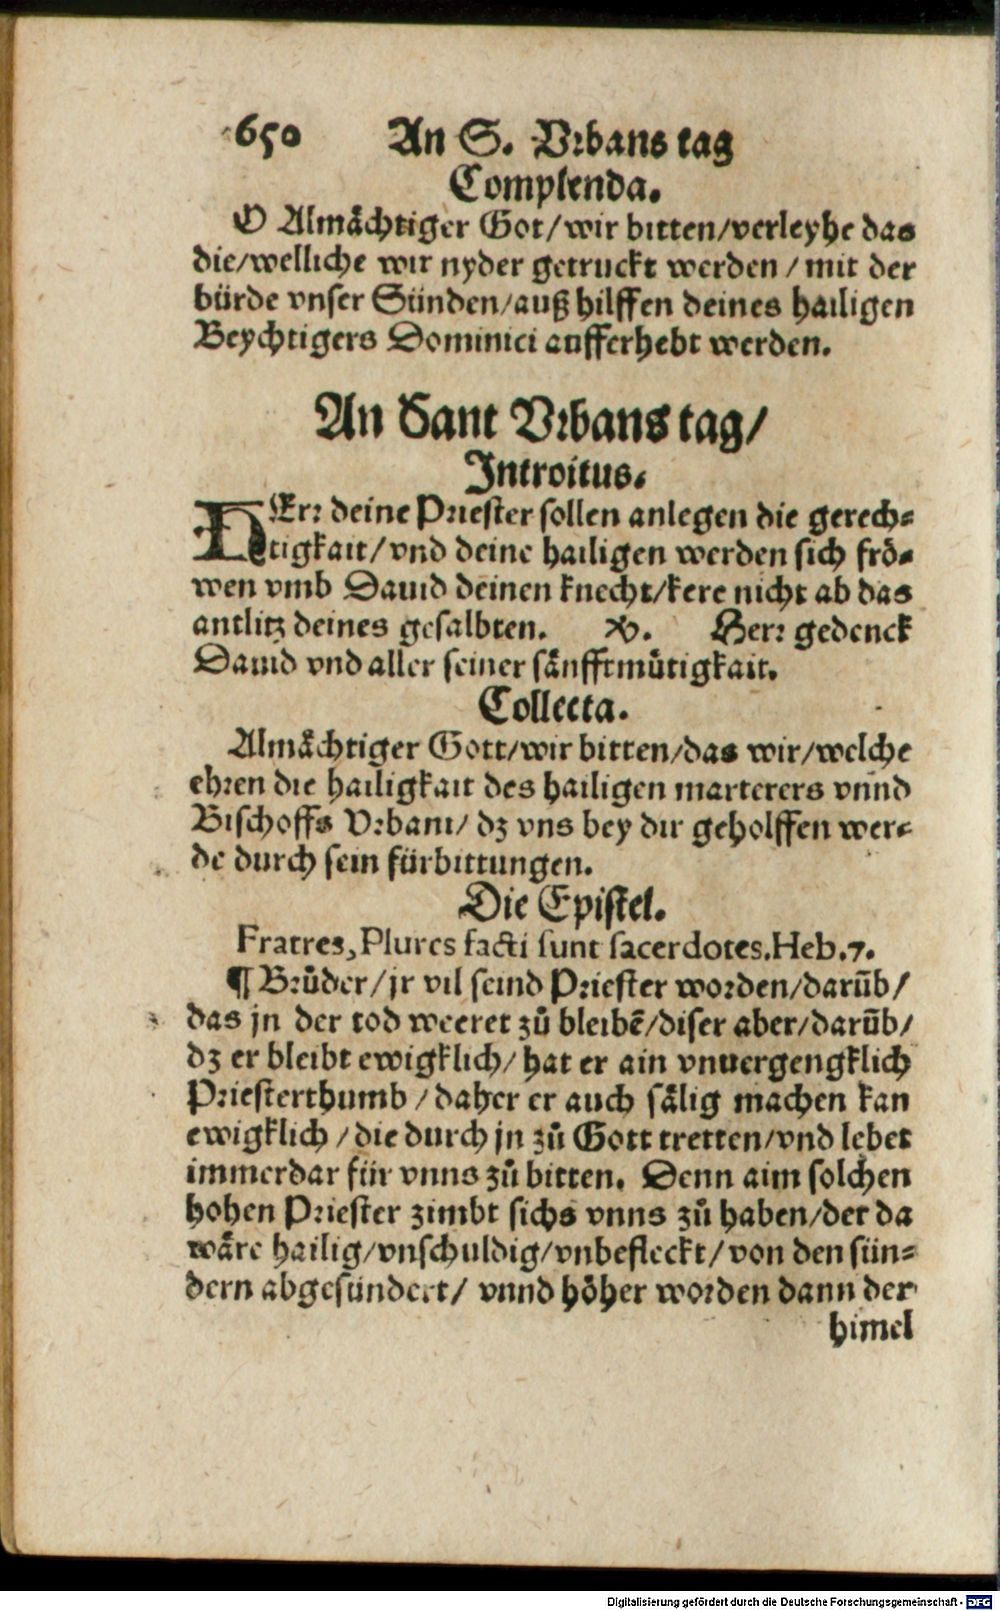 650 An S. Vrbans tag
Complenda.
O Almächtiger Got/wir bitten/verleyhe das
die/welliche wir nyder getruckt werden / mit der
bürde vnser Sünden/auß hilffen deines hailigen
Beychtigers Dominici aufferhebt werden.
An Sant Vrbans tag/
Introitus.
HErr deine Priester sollen anlegen die gerech⸗
tigkait/vnd deine hailigen werden sich frö⸗
wen vmb Dauid deinen knecht/kere nicht ab das
antlitz deines gesalbten. ℣. Herr gedenck
Dauid vnd aller seiner sänfftmütigkait.
Collecta.
Almächtiger Gott/wir bitten/das wir/welche
ehren die hailigkait des hailigen marterers vnnd
Bischoffs Vrbani/ dz vns bey dir geholffen wer⸗
de durch sein fürbittungen.
Die Epistel.
Fratres, Plures facti sunt sacerdotes. Heb. 7.
¶ Brůder/jr vil seind Priester worden/darūb/
das jn der tod weeret zů bleibē/diser aber/darūb/
dz er bleibt ewigklich/ hat er ain vnuergengklich
Priesterthumb / daher er auch sälig machen kan
ewigklich /die durch jn zů Gott tretten/vnd lebet
immerdar für vnns zů bitten. Denn aim solchen
hohen Priester zimbt sichs vnns zů haben/der da
wäre hailig/vnschuldig/vnbefleckt/ von den sün⸗
dern abgesündert/ vnnd höher worden dann der
himel
Digitalisierung gefördert durch die Deutsche Forschungsgemeinschaft - DFG